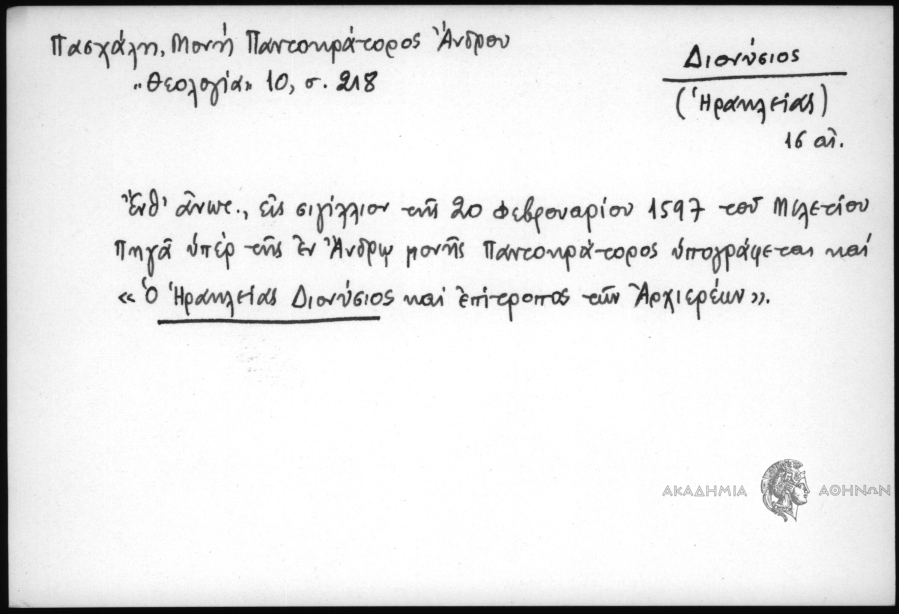 Πασχάλη, Μονή Παντοκράτορος Ἄνδρου
«Θεολογία» 10, σ. 218
Διονύσιος
(Ἡρακλείας)
16 αἰ.
Ἔνθ' ἀνωτ., εἰς σιγίλλιον τῆς 20 Φεβρουαρίου 1597 τοῦ Μελετίου
Πηγᾶ ὑπέρ τῆς ἐν Ἄνδρῳ μονῆς Παντοκράτορος ὑπογράφεται καί
«Ὁ Ἡρακλείας Διονύσιος καί ἐπίτροπος τῶν Ἀρχιερέων».
ΑΚΑΔΗΜΙΑ ΑΘΗΝΩΝ